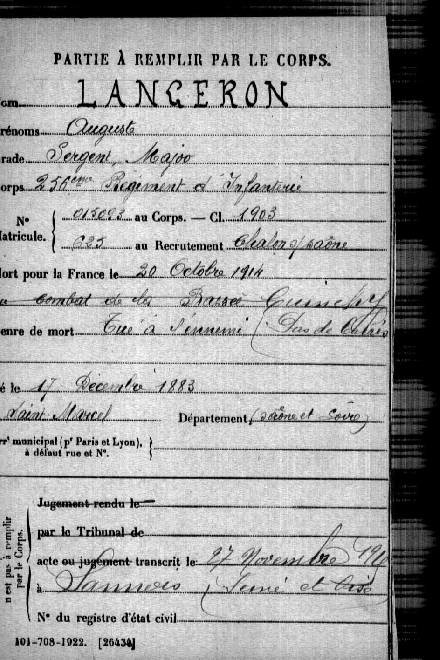 PARTIE À REMPLIR PAR LE CORPS.
om LANGERON
rénoms Auguste
rade Sergent Major
orps 256ème Régiment d'Infanterie
N° 015093 au Corps. — Cl. 1903
atricule. 625 au Recrutement Chalon s/Saône
ort pour la France le 20 Octobre 1914
combat de la Bassée Cuinchy
enre de mort Tué à l'ennemi (Pas de Calais
é le 17 Décembre 1883
Saint Marcel Département (Saône et Loire)
rr* municipal (p* Paris et Lyon),
à défaut rue et N°.
Jugement rendu le
par le Tribunal de
acte ou jugement transcrit le 27 Novembre
à Sannois (Seine et Oise
N° du registre d'état civil
n'est pas à remplir
par le Corps.
101-708-1922. [26434]